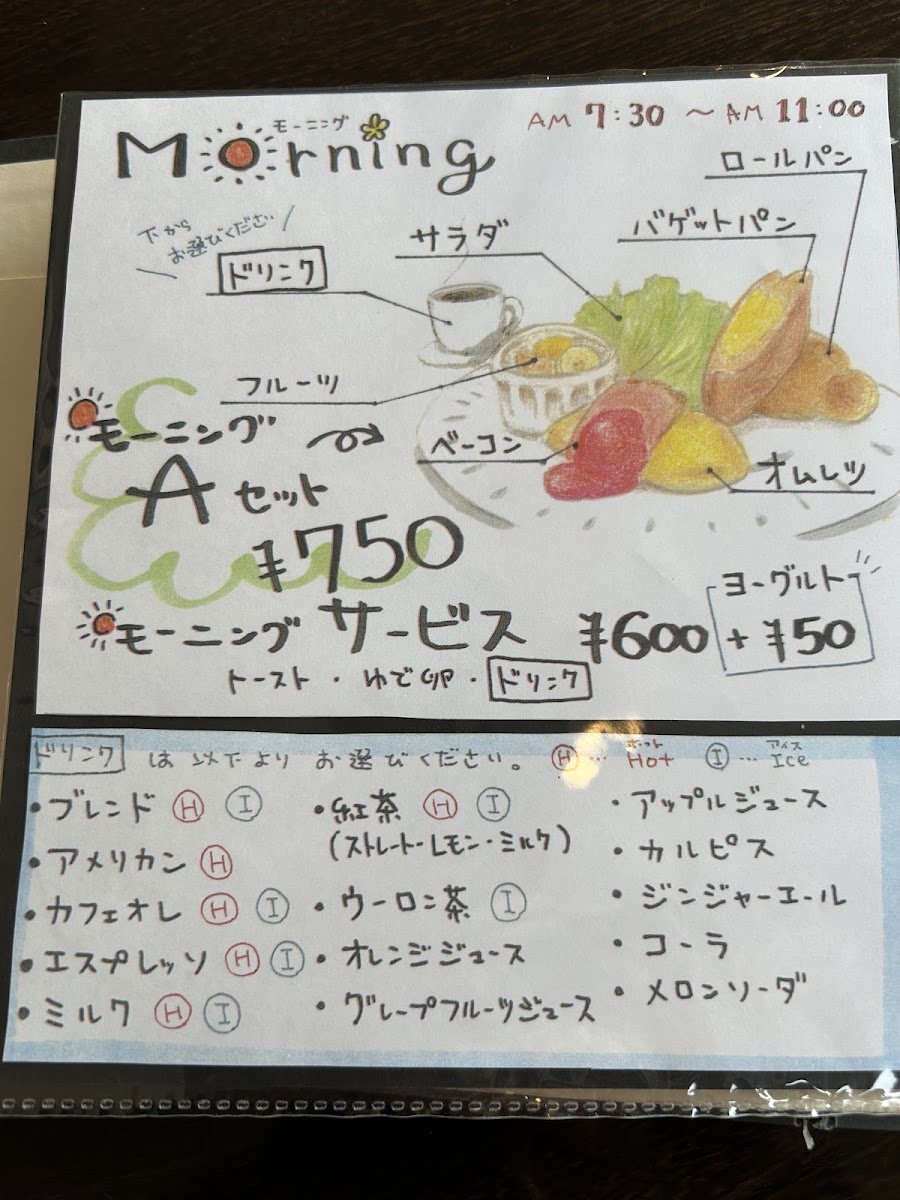 モーニング
Morning
AM 7:30 〜 AM 11:00
ロールパン
バゲットパン
サラダ
下から
お選びください
ドリンク
フルーツ
ベーコン
オムレツ
モーニング
Aセット
¥750
モーニングサービス ¥600
ヨーグルト
+¥50
トースト・ゆで卵・ドリンク
ドリンク は以下よりお選びください。 Ⓗ…Hot ホット Ⓘ…Ice アイス
・ブレンド Ⓗ Ⓘ
・アメリカン Ⓗ
・カフェオレ Ⓗ Ⓘ
・エスプレッソ Ⓗ Ⓘ
・ミルク Ⓗ Ⓘ
・紅茶 Ⓗ Ⓘ
(ストレート・レモン・ミルク)
・ウーロン茶 Ⓘ
・オレンジジュース
・グレープフルーツジュース
・アップルジュース
・カルピス
・ジンジャーエール
・コーラ
・メロンソーダ